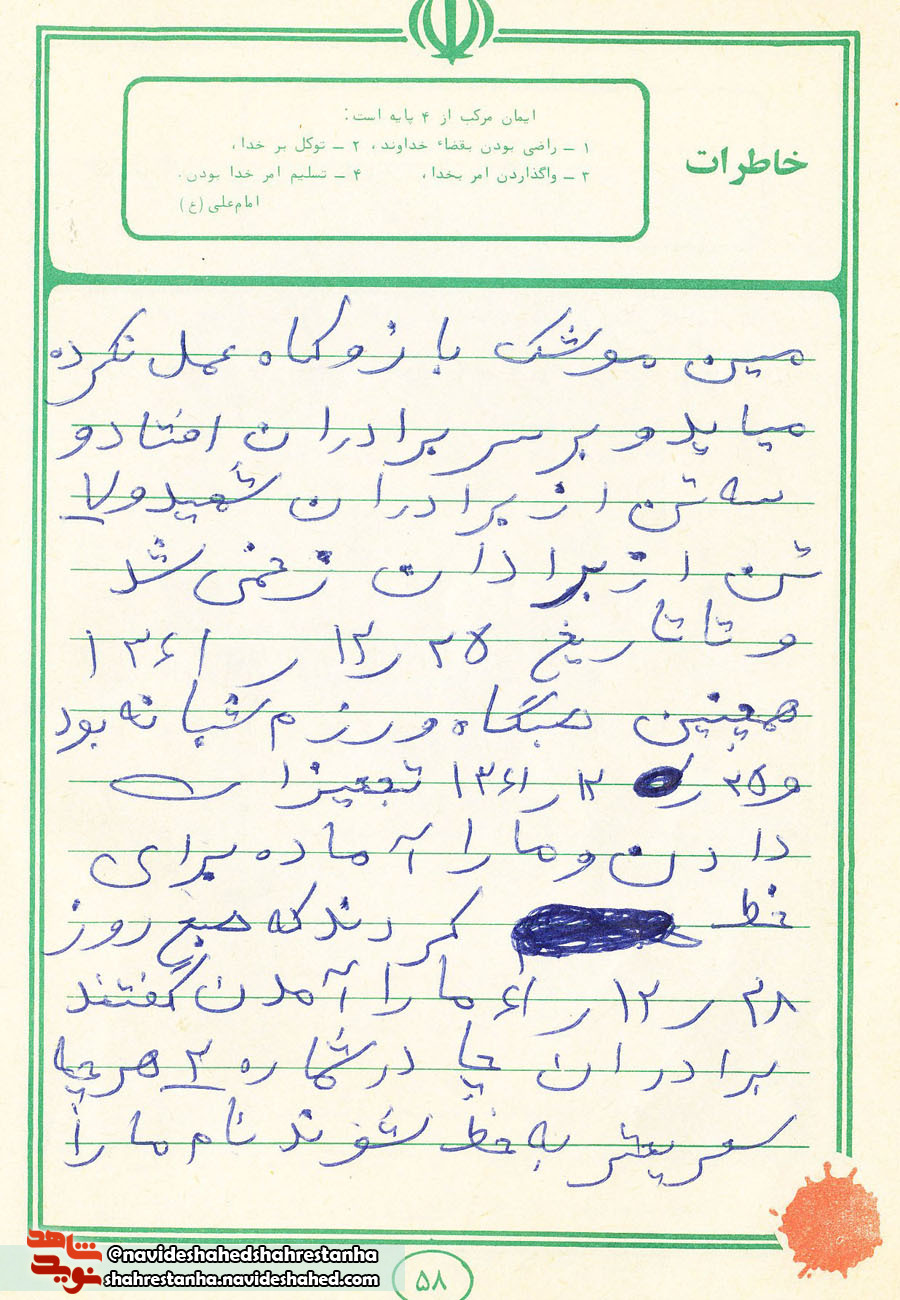 خاطرات
ایمان مرکب از ۴ پایه است:
۱ ـ راضی بودن بقضاء خداوند، ۲ ـ توکل بر خدا،
۳ ـ واگذاردن امر بخدا، ۴ ـ تسلیم امر خدا بودن.
امام‌علی (ع)
مین موشک با زوکاه عمل نکرده
میاید و بر سر برادران افتاد و
سه تن از برادران شهید و ۷
تن از برادان زخمی شد
و تا تاریخ ۲۵ ر ۱۲ ر ۱۳۶۱
همچنین صبگاه و رزم شبانه بود
و ۲۵ ر ۱۲ ر ۱۳۶۱ تجهیزات
دادن و ما را آماده برای
خط کردند که صبح روز
۲۸ ر ۱۲ ر ۶۱ ما را آمدن گفتند
برادران چا در شماره ۲ هر چه
سعریعتر به خط شوند نام ما را
شاهد
نوید
@navideshahedshahrestanha
shahrestanha.navideshahed.com
۵۸